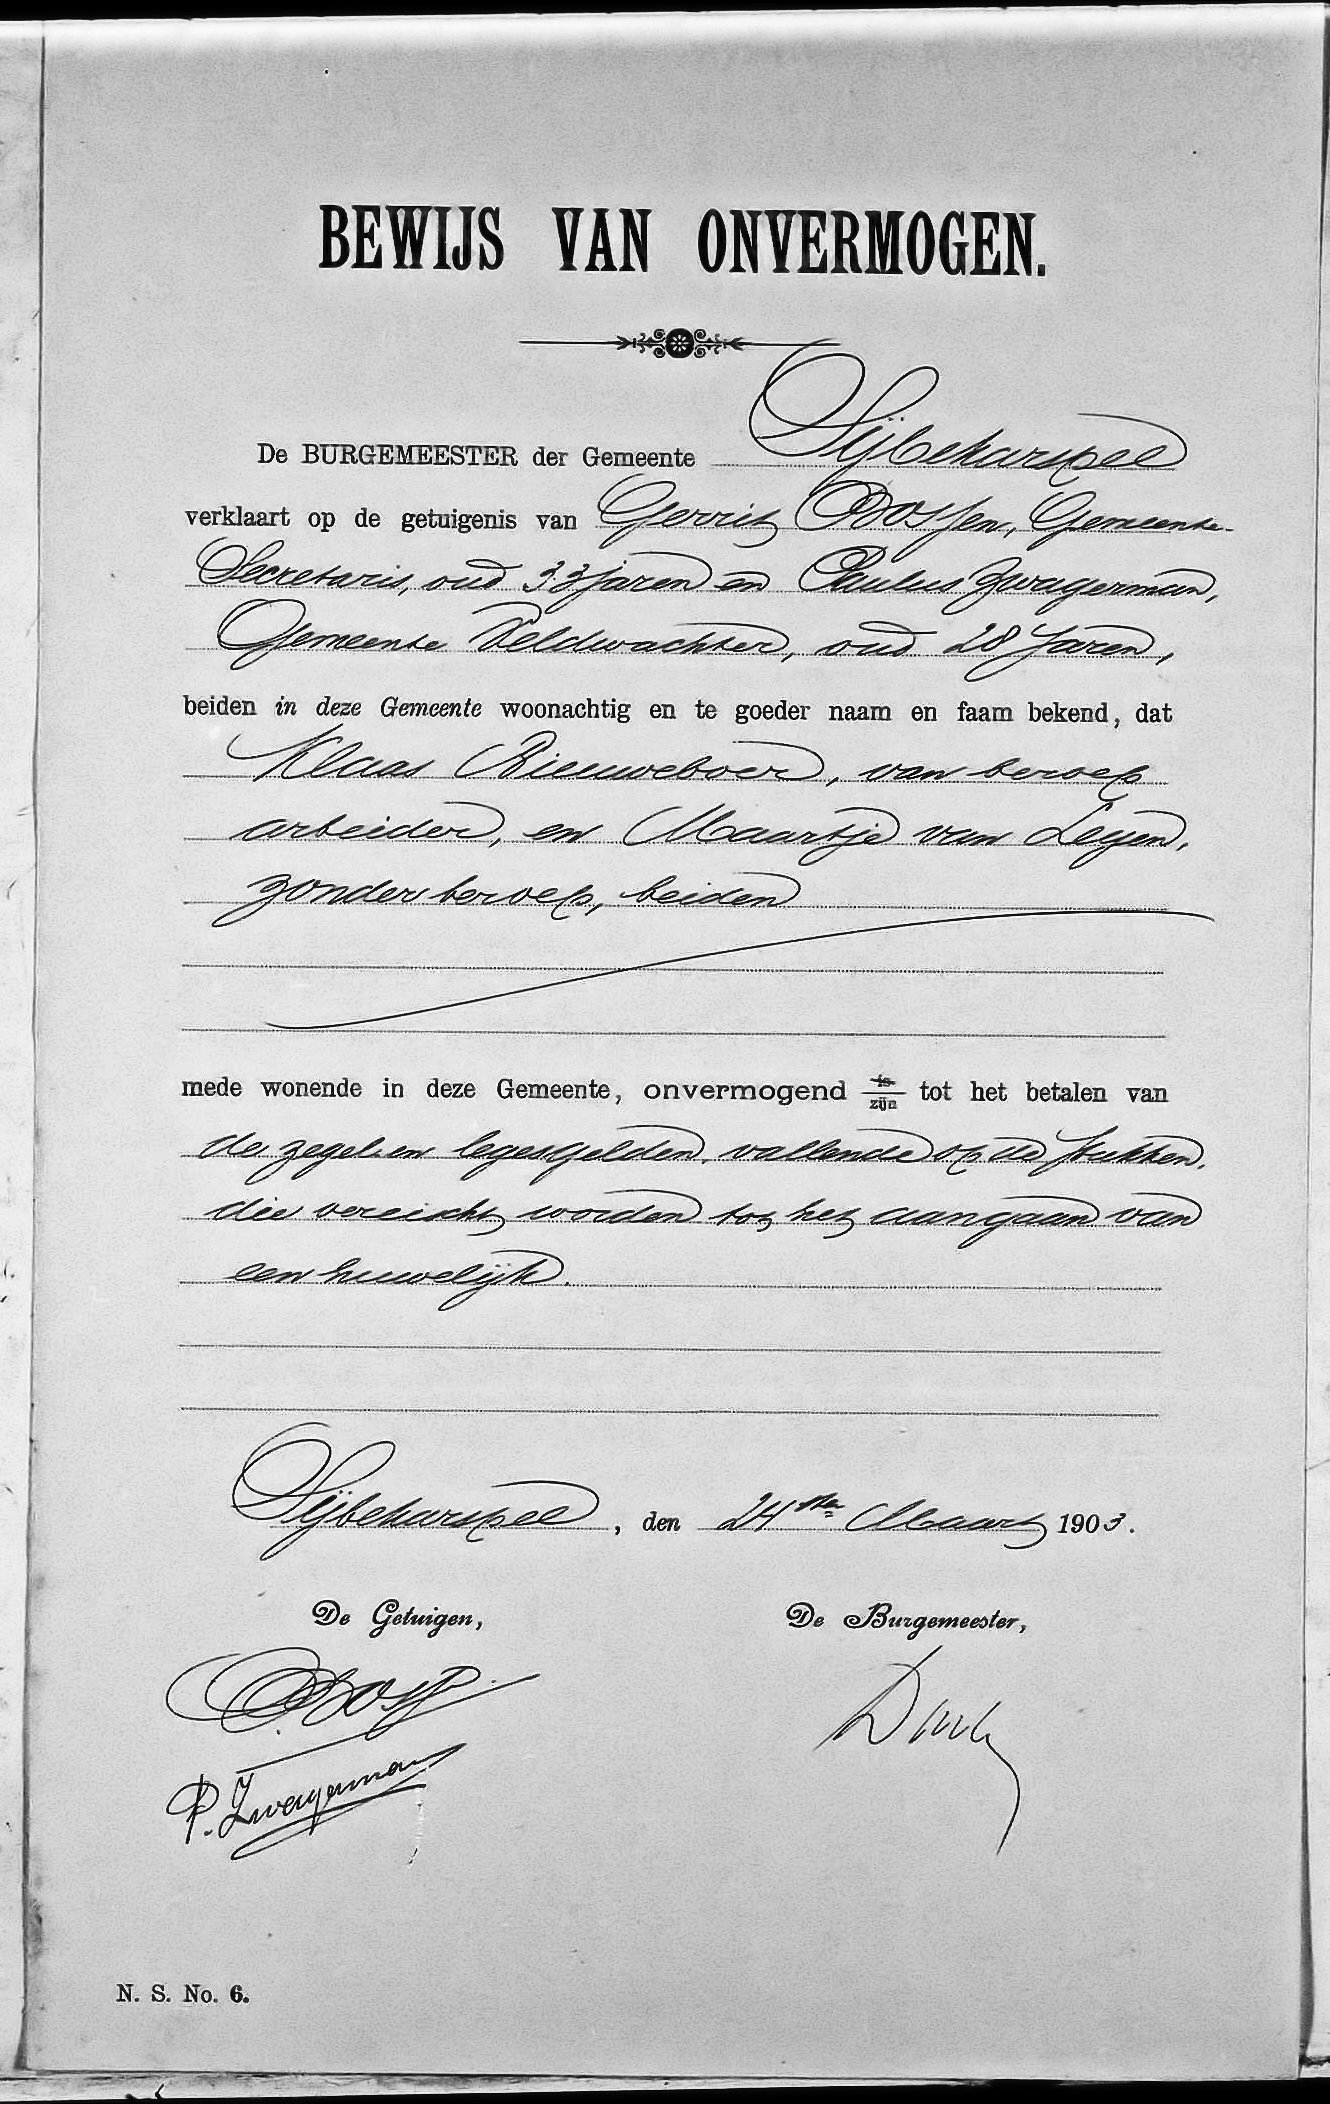 BEWIJS VAN ONVERMOGEN.
De BURGEMEESTER der Gemeente Sijbekarspel
verklaart op de getuigenis van Gerrit Dossen, Gemeente-
Secretaris, oud 33 jaren en Paulus Zwagerman,
Gemeente Veldwachter, oud 28 Jaren,
beiden in deze Gemeente woonachtig en te goeder naam en faam bekend, dat
Klaas Rieuweboer, van beroep
arbeider, en Maartje van Leyen,
zonder beroep, beiden
mede wonende in deze Gemeente, onvermogend is
zijn tot het betalen van
de zegel en legesgelden, vallende op de stukken,
die vereischt worden tot het aangaan van
een huwelijk.
Sijbekarspel, den 24sten Maart 1903.
De Getuigen, De Burgemeester,
P. Zwagerman
N. S. No. 6.